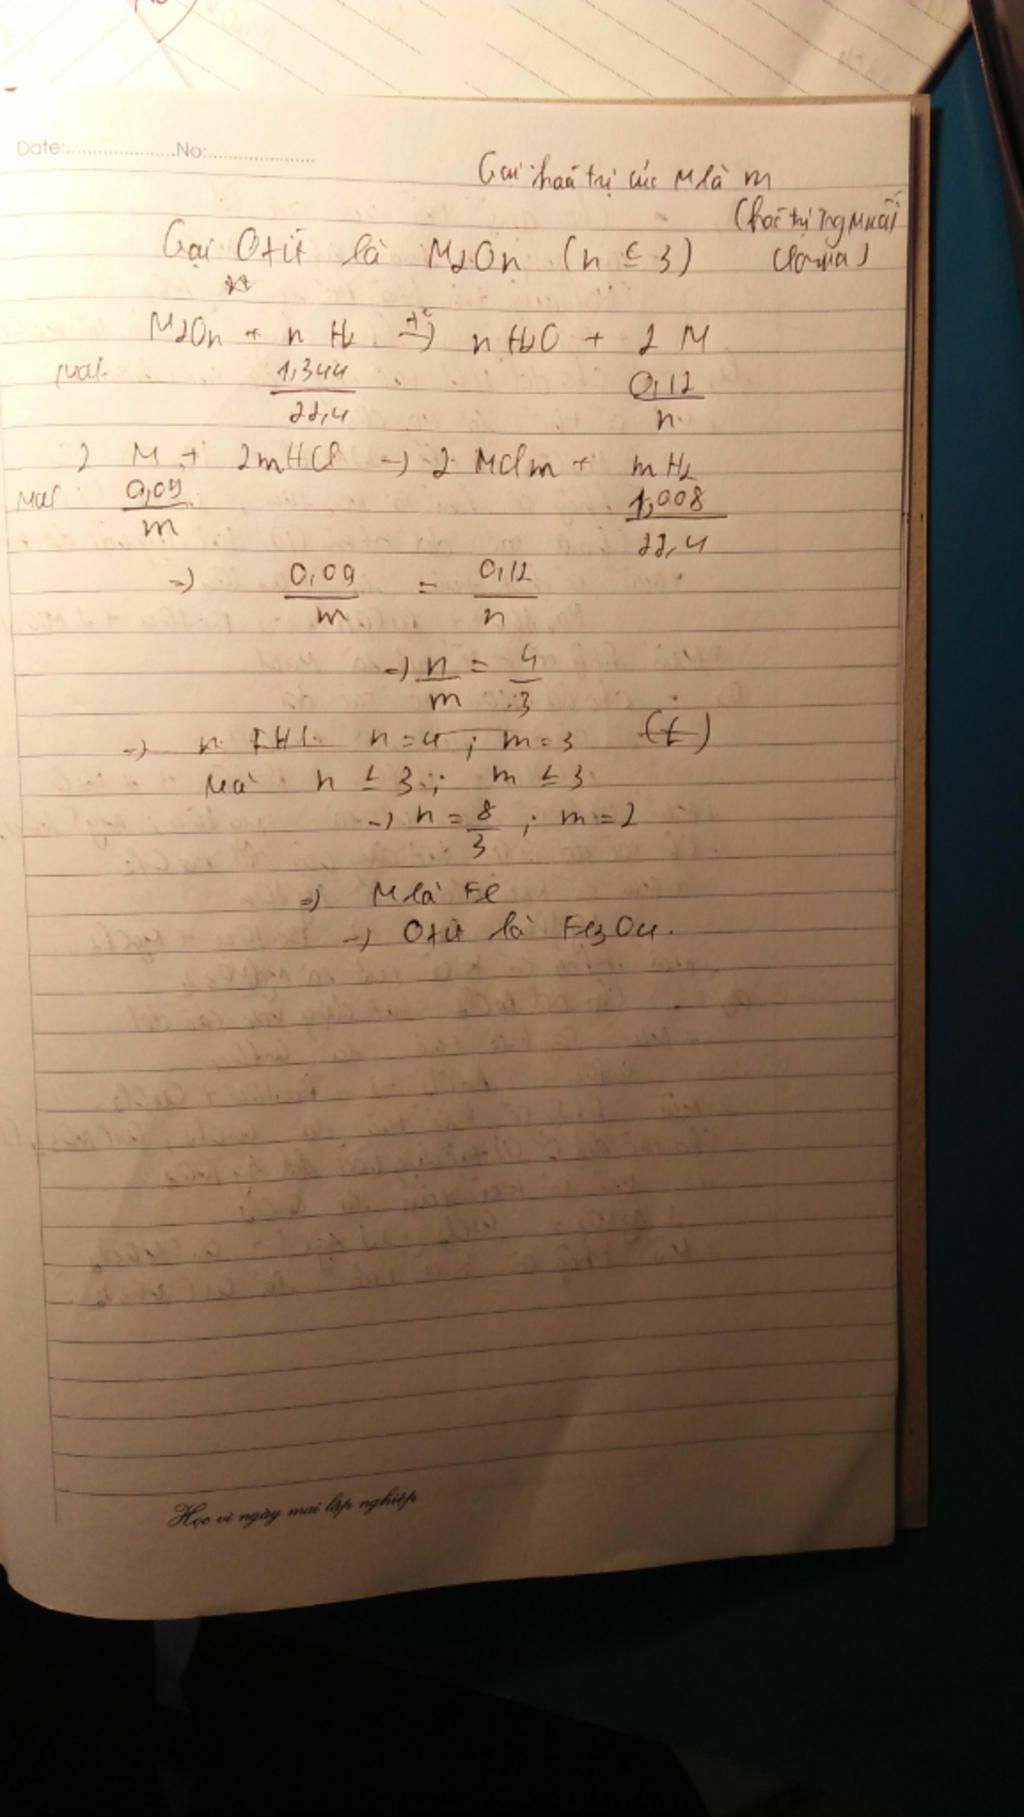 Date:..................No:..................
Gọi hoá trị của M là m
(hoá trị trg muối
clorua)
Gọi Oxit là M2On (n ≤ 3)
M2On + n H2 →t° n H2O + 2 M
mol 1,344/22,4 0,12/n
2 M + 2mHCl → 2 MClm + mH2
mol 0,09/m 1,008/22,4
=> 0,09/m = 0,12/n
=> n/m = 4/3
=> n = 4 ; m = 3
Mà n ≤ 3 ; m ≤ 3
=> n = 8/3 ; m = 2
=> M là Fe
=> Oxit là Fe3O4.
Học vì ngày mai lập nghiệp